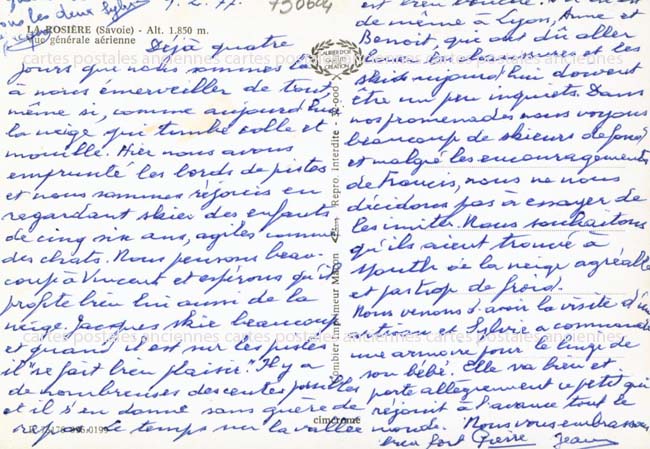 les deux Sylvie
9.2.77
730604
LA ROSIÈRE (Savoie) - Alt. 1.850 m.
Vue générale aérienne
Déjà quatre
jours que nous sommes là
à nous émerveiller de tout
même si, comme aujourd'hui
la neige qui tombe colle et
mouille. Hier nous avons
emprunté les bords de pistes
et nous sommes réjouis en
regardant skier des enfants
de cinq six ans, agiles comme
des chats. Nous pensons beau-
coup à Vincent et espérons qu'il
profite bien lui aussi de la
neige. Jacques skie beaucoup
et quand il est sur les pistes
il "se fait bien plaisir". Il y a
de nombreuses descentes possibles
et il s'en donne sans guère de
répit. Le temps sur la vallée
est bien
de même à Lyon, Anne et
Benoit, qui ont dû aller
les chaussures et les
skis aujourd'hui doivent
être un peu inquiets. Dans
nos promenades nous voyons
beaucoup de skieurs de fond
et malgré les encouragements
de Francis, nous ne nous
décidons pas à essayer de
les imiter. Nous souhaitons
qu'ils aient trouvé à
la neige agréable
et pas trop de froid.
Nous venons d'avoir la visite d'un
artisan et Sylvie a commandé
une armoire pour le linge de
son bébé. Elle va bien et
porte allègrement ce petit qui
réjouit à l'avance tout le
monde. Nous vous embrassons
bien fort Pierre Jean
Combier Imprimeur Macon
Repro. Interdite
cimcrome
cartes postales anciennes